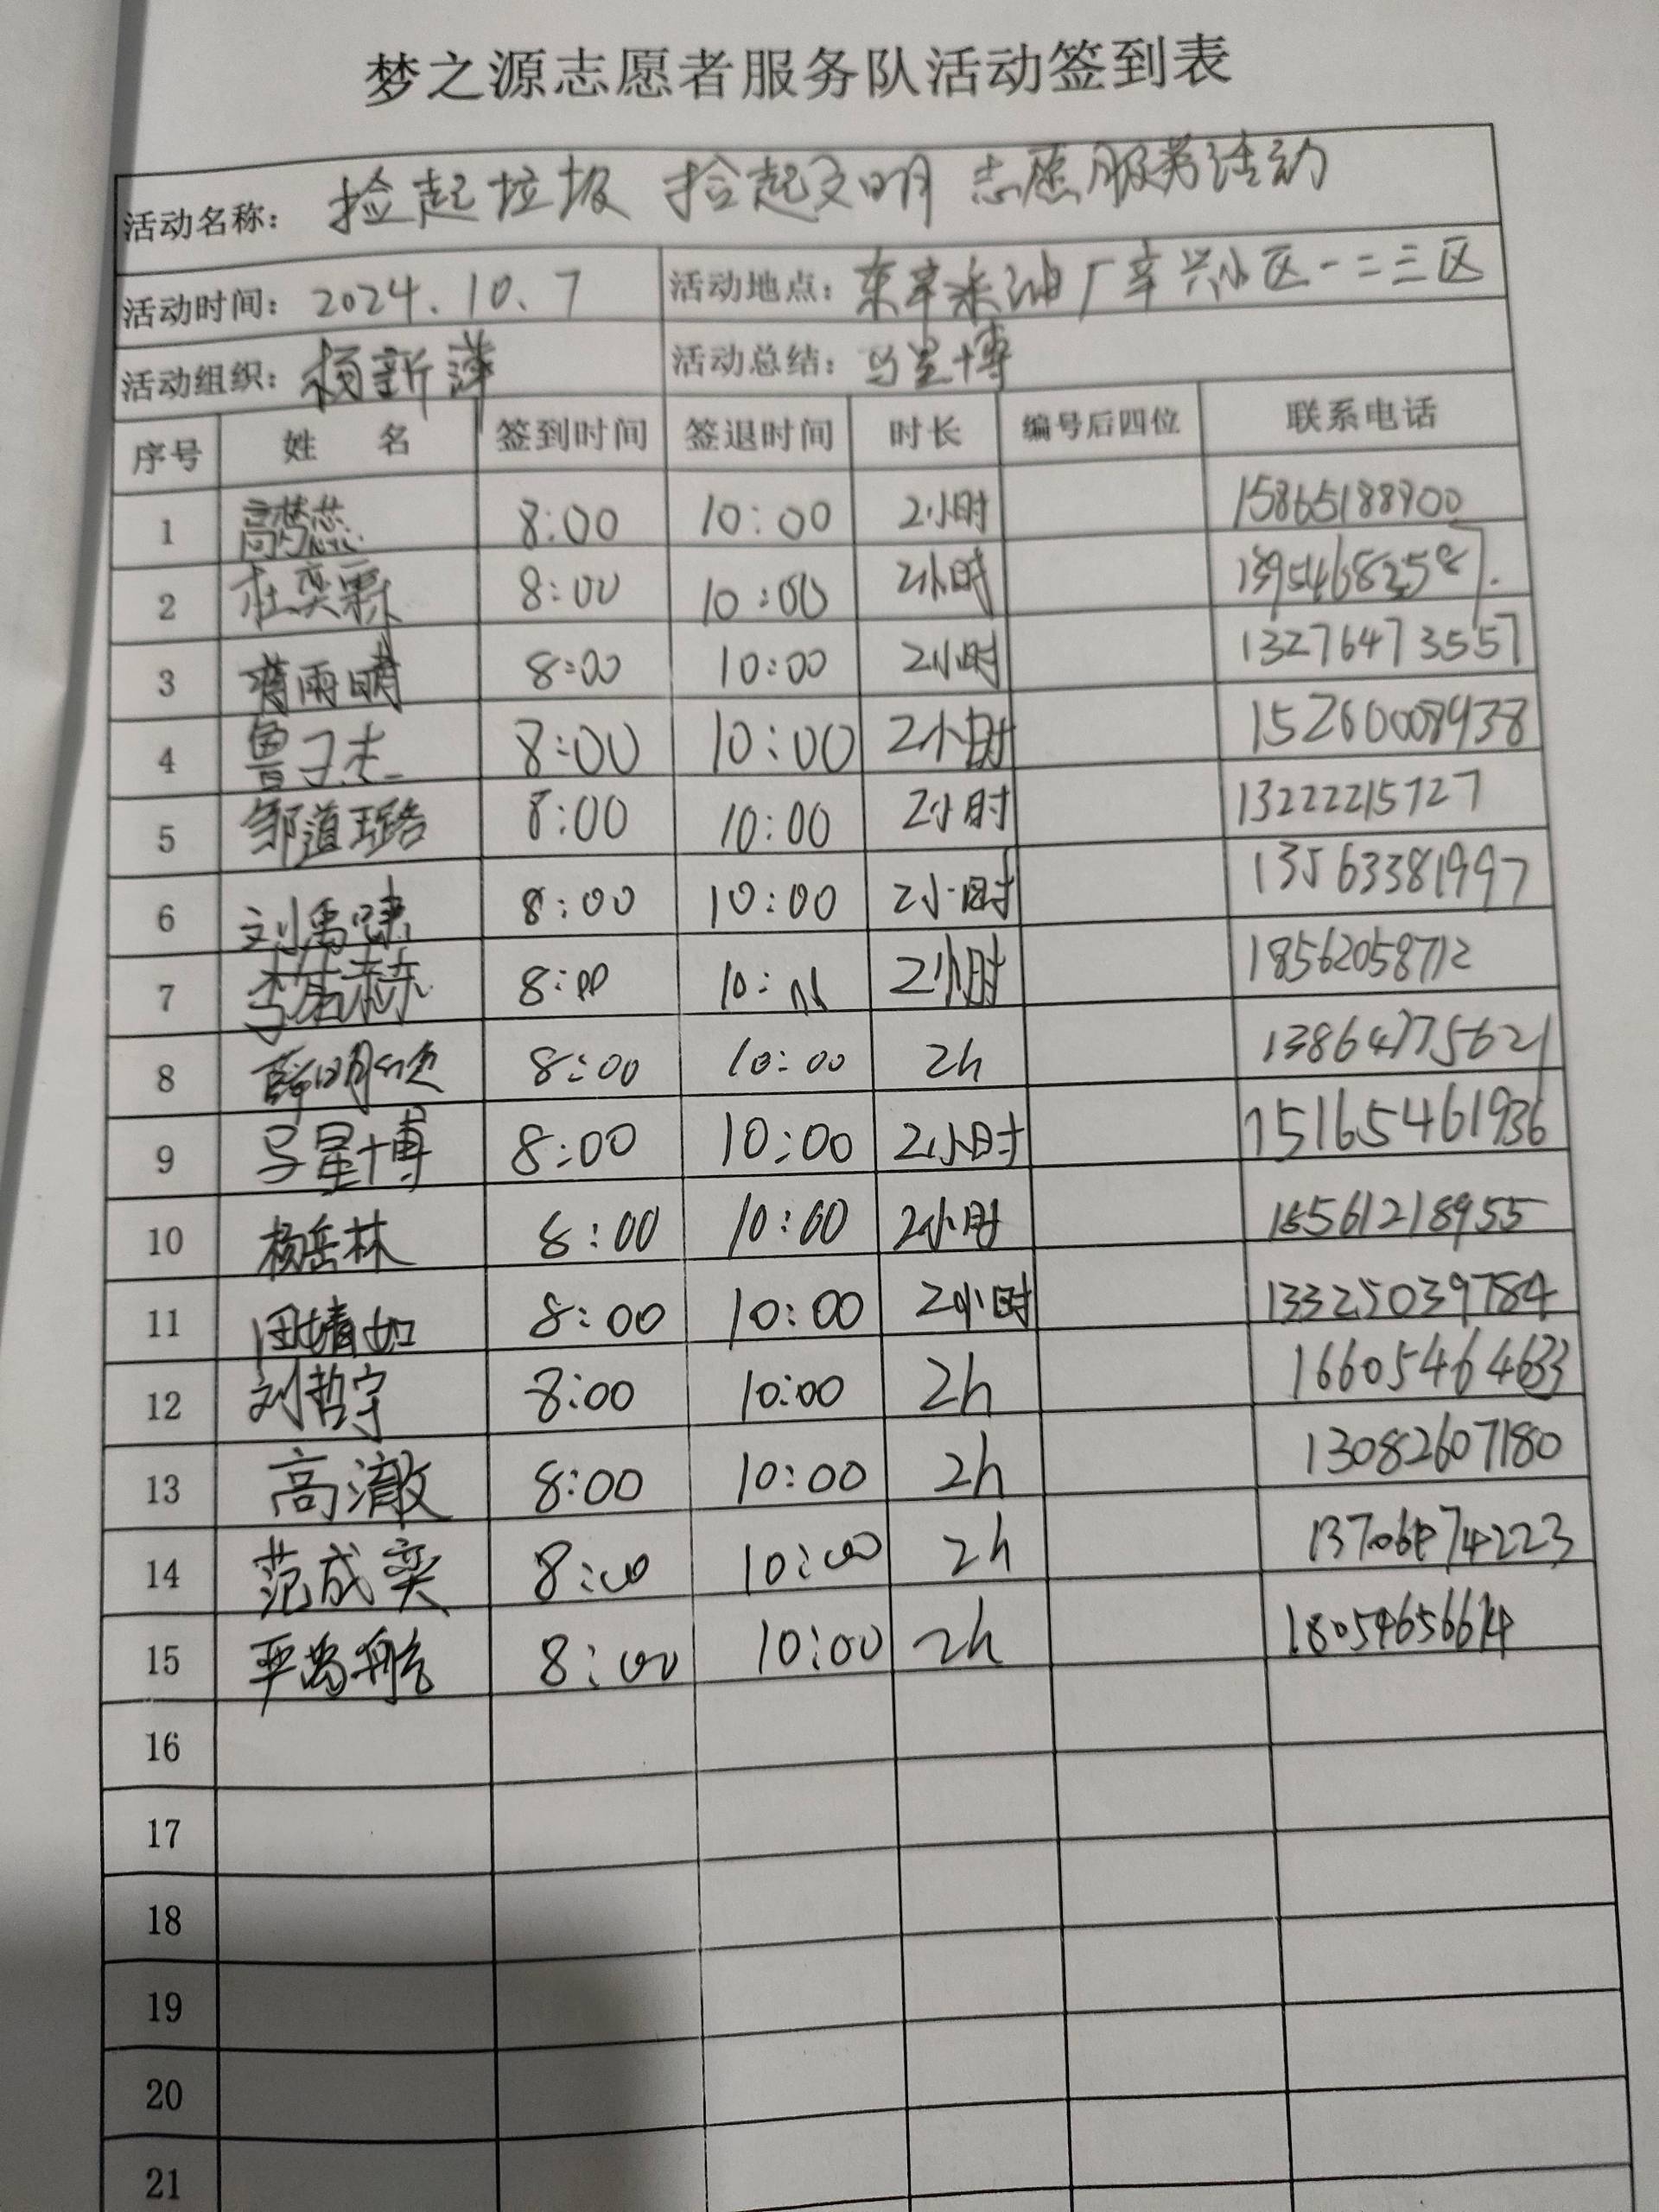 梦之源志愿者服务队活动签到表
活动名称： 捡起垃圾 拾起文明 志愿服务活动
活动时间： 2024.10.7 活动地点： 东辛采油厂辛兴小区一二三区
活动组织： 杨新萍 活动总结： 马星博
序号 姓 名 签到时间 签退时间 时长 编号后四位 联系电话
1 高梦蕊 8:00 10:00 2小时 15865188900
2 杜奕霖 8:00 10:00 2小时
3 雨晴 8:00 10:00 2小时 13276473557
4 鲁子杰 8:00 10:00 2小时 15260008938
5 邹道璐 8:00 10:00 2小时 13222215727
6 刘禹啸 8:00 10:00 2小时 13563381997
7 8:00 10: 2小时 18562058712
8 薛明 8:00 10:00 2h 13864775621
9 马星博 8:00 10:00 2小时 15165461936
10 杨岳林 8:00 10:00 2小时
11 田婧如 8:00 10:00 2小时 13325039784
12 刘哲宇 8:00 10:00 2h 16605464633
13 高澈 8:00 10:00 2h 13082607180
14 范成奕 8:00 10:00 2h
15 8:00 10:00 2h
16
17
18
19
20
21